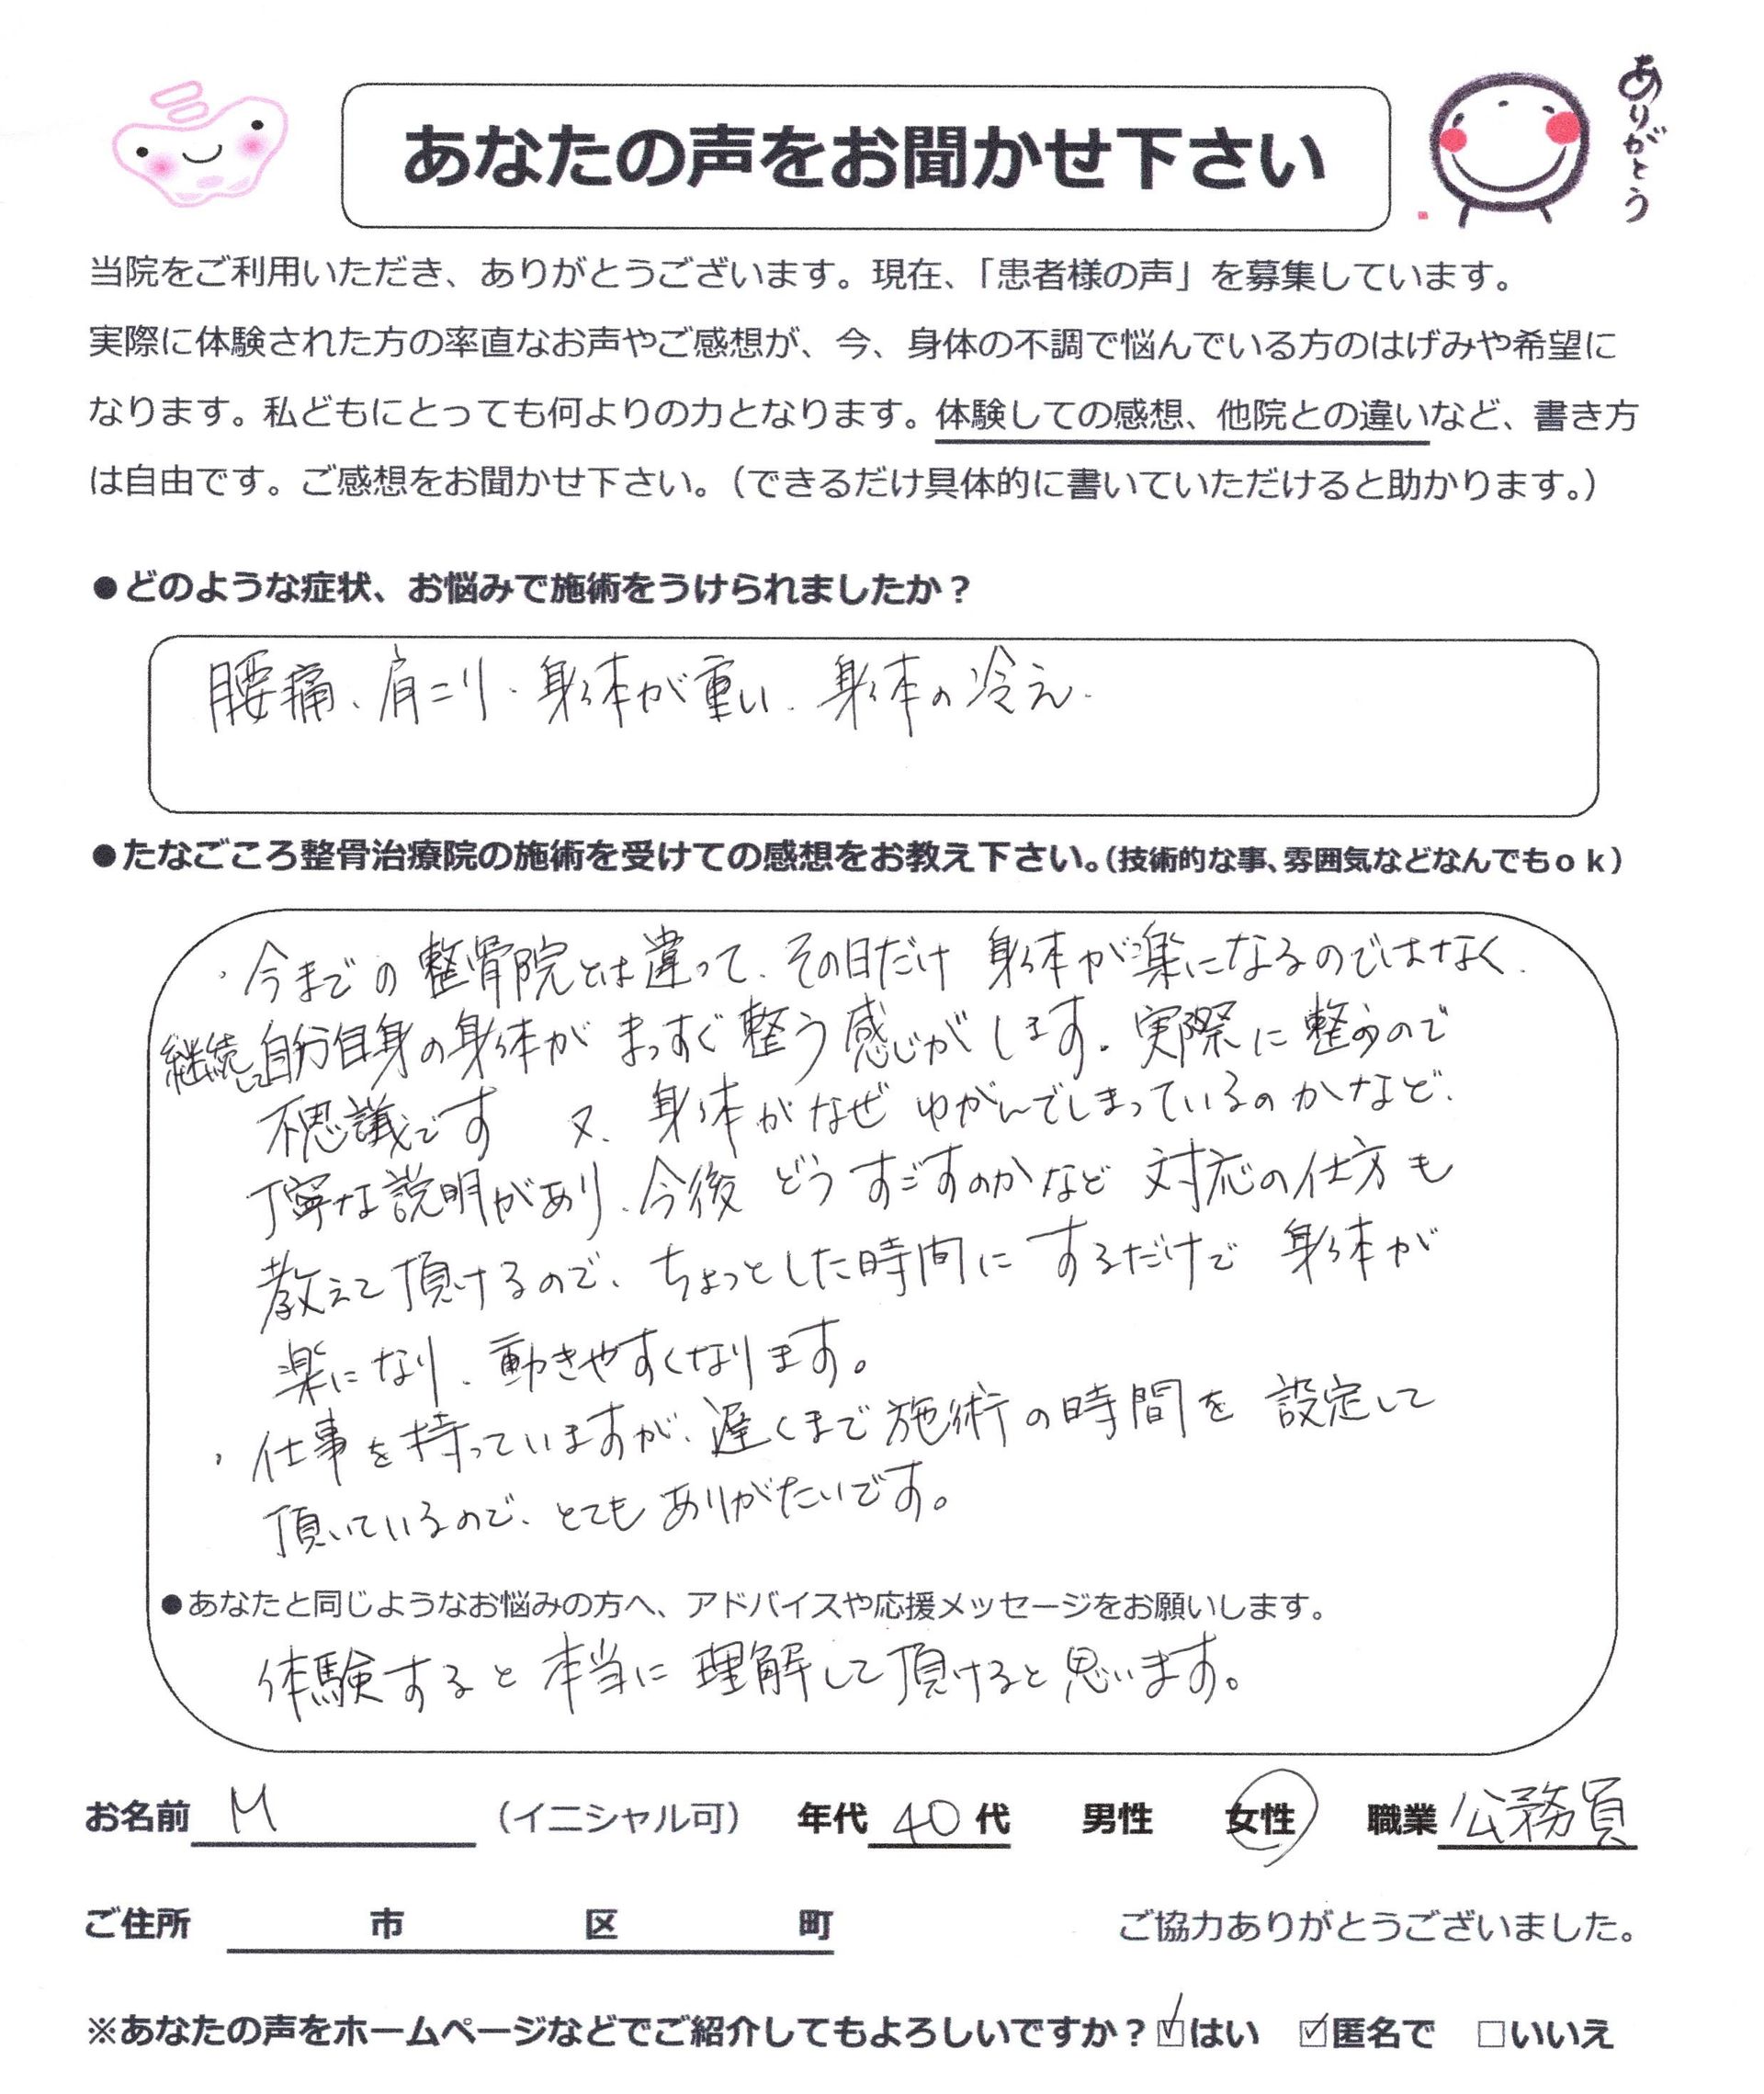 あなたの声をお聞かせ下さい
ありがとう
当院をご利用いただき、ありがとうございます。現在、「患者様の声」を募集しています。
実際に体験された方の率直なお声やご感想が、今、身体の不調で悩んでいる方のはげみや希望に
なります。私どもにとっても何よりの力となります。体験しての感想、他院との違いなど、書き方
は自由です。ご感想をお聞かせ下さい。（できるだけ具体的に書いていただけると助かります。）
●どのような症状、お悩みで施術をうけられましたか？
腰痛、肩こり、身体が重い、身体の冷え、
●たなごころ整骨治療院の施術を受けての感想をお教え下さい。（技術的な事、雰囲気などなんでもｏｋ）
・今までの整骨院とは違って、その日だけ身体が楽になるのではなく、
継続して自分自身の身体がまっすぐ整う感じがします。実際に整うので
不思議です 又、身体がなぜゆがんでしまっているのかなど、
丁寧な説明があり、今後どうすごすのかなど対応の仕方も
教えて頂けるので、ちょっとした時間にするだけで身体が
楽になり、動きやすくなります。
・仕事を持っていますが、遅くまで施術の時間を設定して
頂いているので、とてもありがたいです。
●あなたと同じようなお悩みの方へ、アドバイスや応援メッセージをお願いします。
体験すると本当に理解して頂けると思います。
お名前 M （イニシャル可） 年代 40 代 男性 女性 職業 公務員
ご住所 市 区 町 ご協力ありがとうございました。
※あなたの声をホームページなどでご紹介してもよろしいですか？☑はい ☑匿名で □いいえ